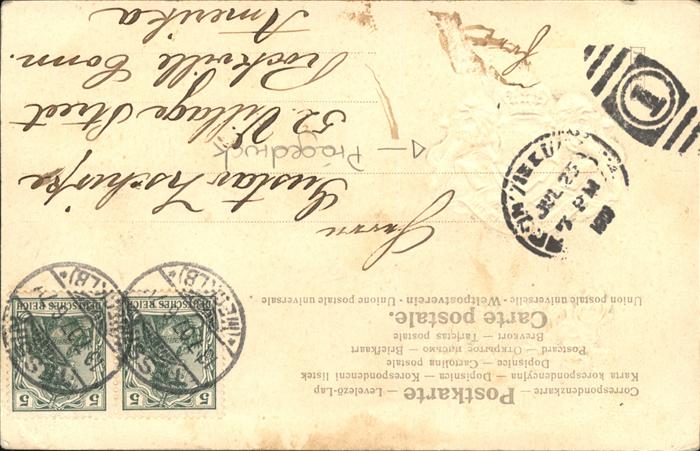 Postkarte — Levelező-Lap
Correspondenzkarte — Dopisnica — Korespondenčni listek
Karta korespondencyjna — Cartolina postale
Dopisnice — Открытое письмо — Briefkaart
Postcard — Tarjetas postale
Brevkort
Carte postale.
Union postale universelle - Weltpostverein - Unione postale universale
5 5
DEUTSCHES REICH DEUTSCHES REICH
Herrn
Gustav
Prägedruck
52 Village Street
Rockville Conn.
Amerika
1
7 PM